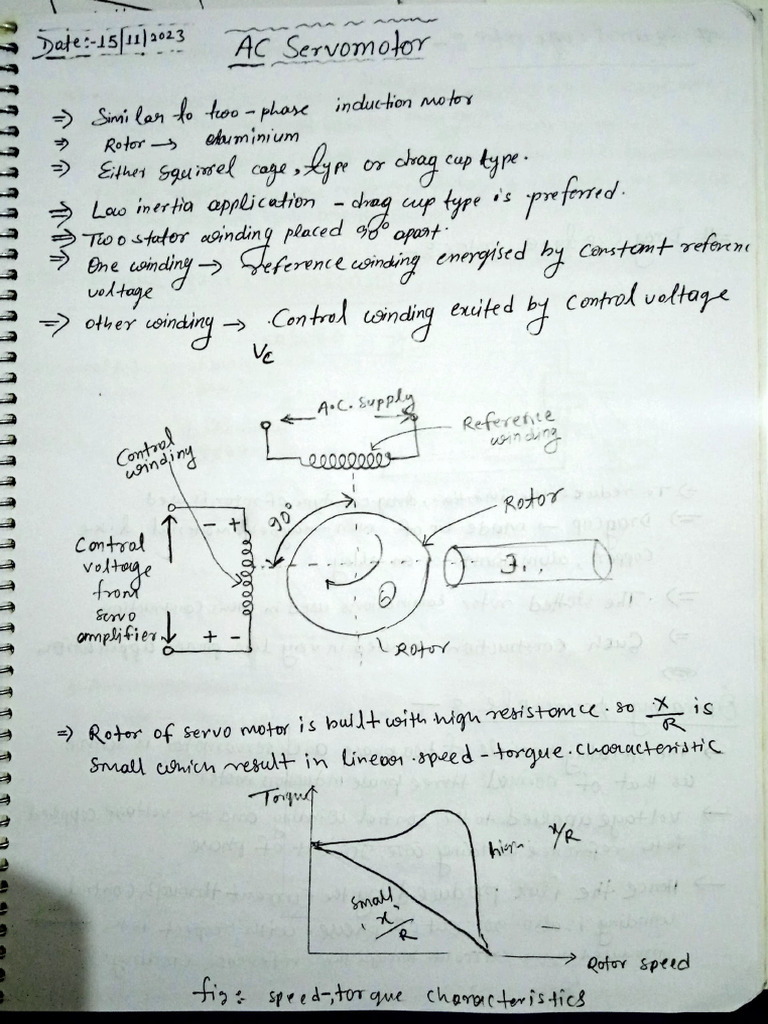 Date:-15/11/2023
AC Servomotor
⇒ Similar to two-phase induction motor
⇒ Rotor → aluminium
⇒ Either squirrel cage, type or drag cup type.
⇒ Low inertia application - drag cup type is preferred.
⇒ Two stator winding placed 90° apart.
⇒ One winding → reference winding energised by constant referenc
voltage
⇒ other winding → Control winding excited by Control voltage
Vc
A.C. supply
Reference
winding
Control
winding
90°
Rotor
- +
Control
voltage
from
servo
amplifier
+ -
Rotor
⇒ Rotor of servo motor is built with high resistance. so X/R is
small which result in linear speed-torque characteristic
Torque
high X/R
small
X/R
Rotor speed
fig: speed-torque characteristics